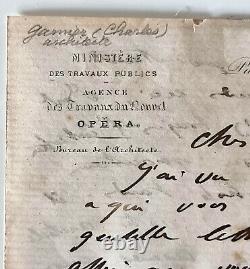 garnier (Charles)
architecte
MINISTÈRE
DES TRAVAUX PUBLICS
AGENCE
des Travaux du Nouvel
OPÉRA.
Bureau de l'Architecte.
Cher
j'ai vu
a qui vous
gentille